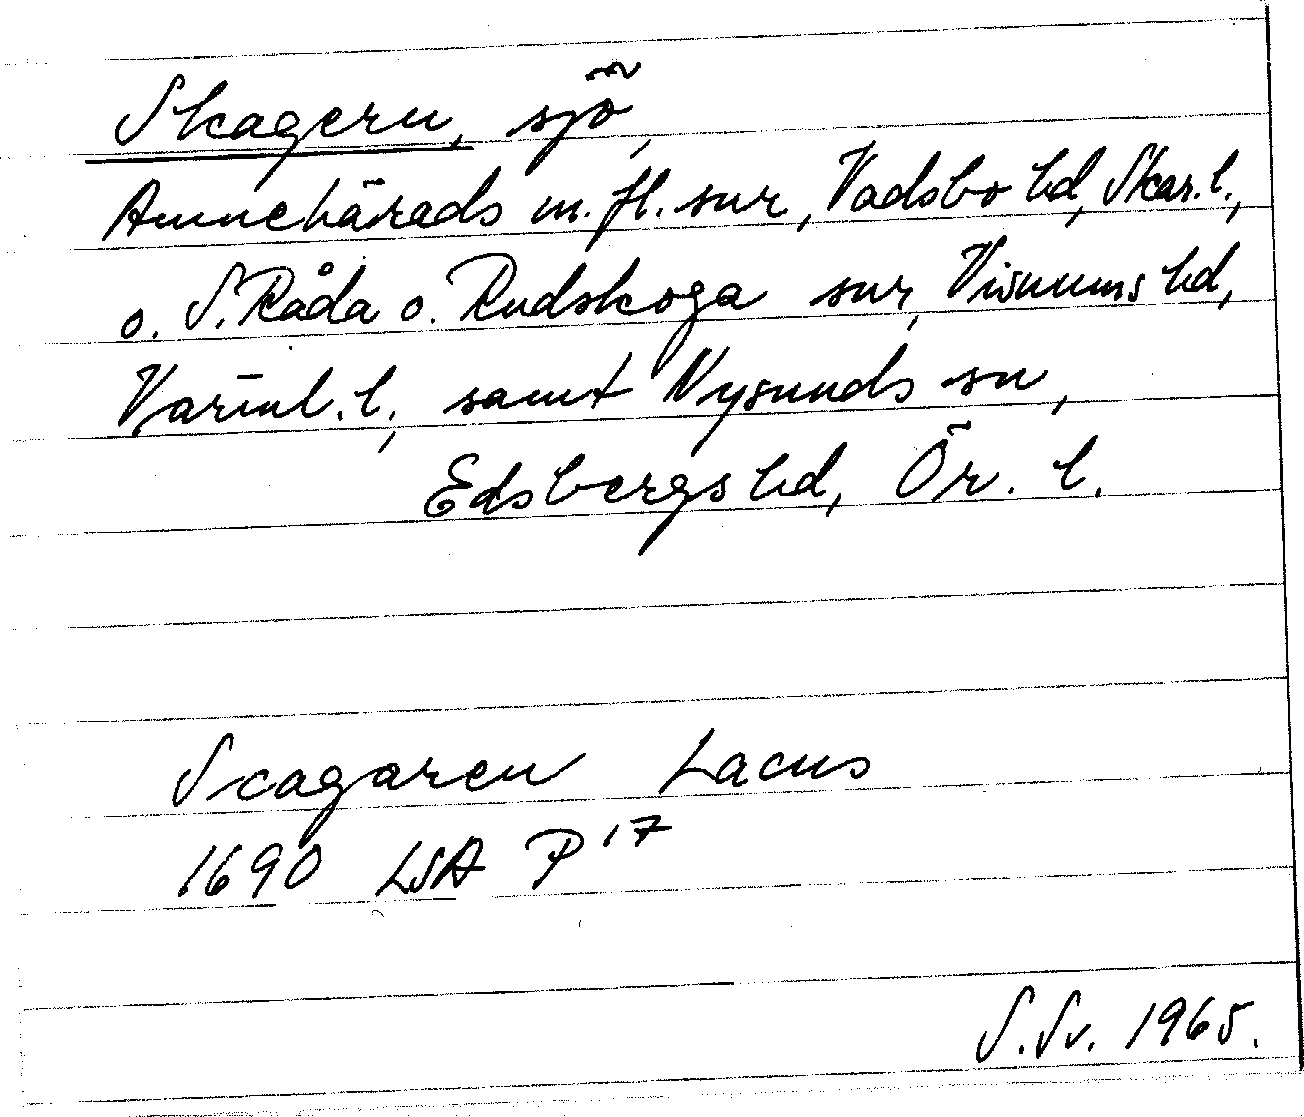 Skagern, sjö,
Amnehärads m. fl. snr, Vadsbo hd, Skar. l.,
o. S. Råda o. Rudskoga snr, Visnums hd,
Värml. l., samt Nysunds sn,
Edsbergs hd, Ör. l.
Scagaren Lacus
1690 LSA P 17
S. Sv. 1965.